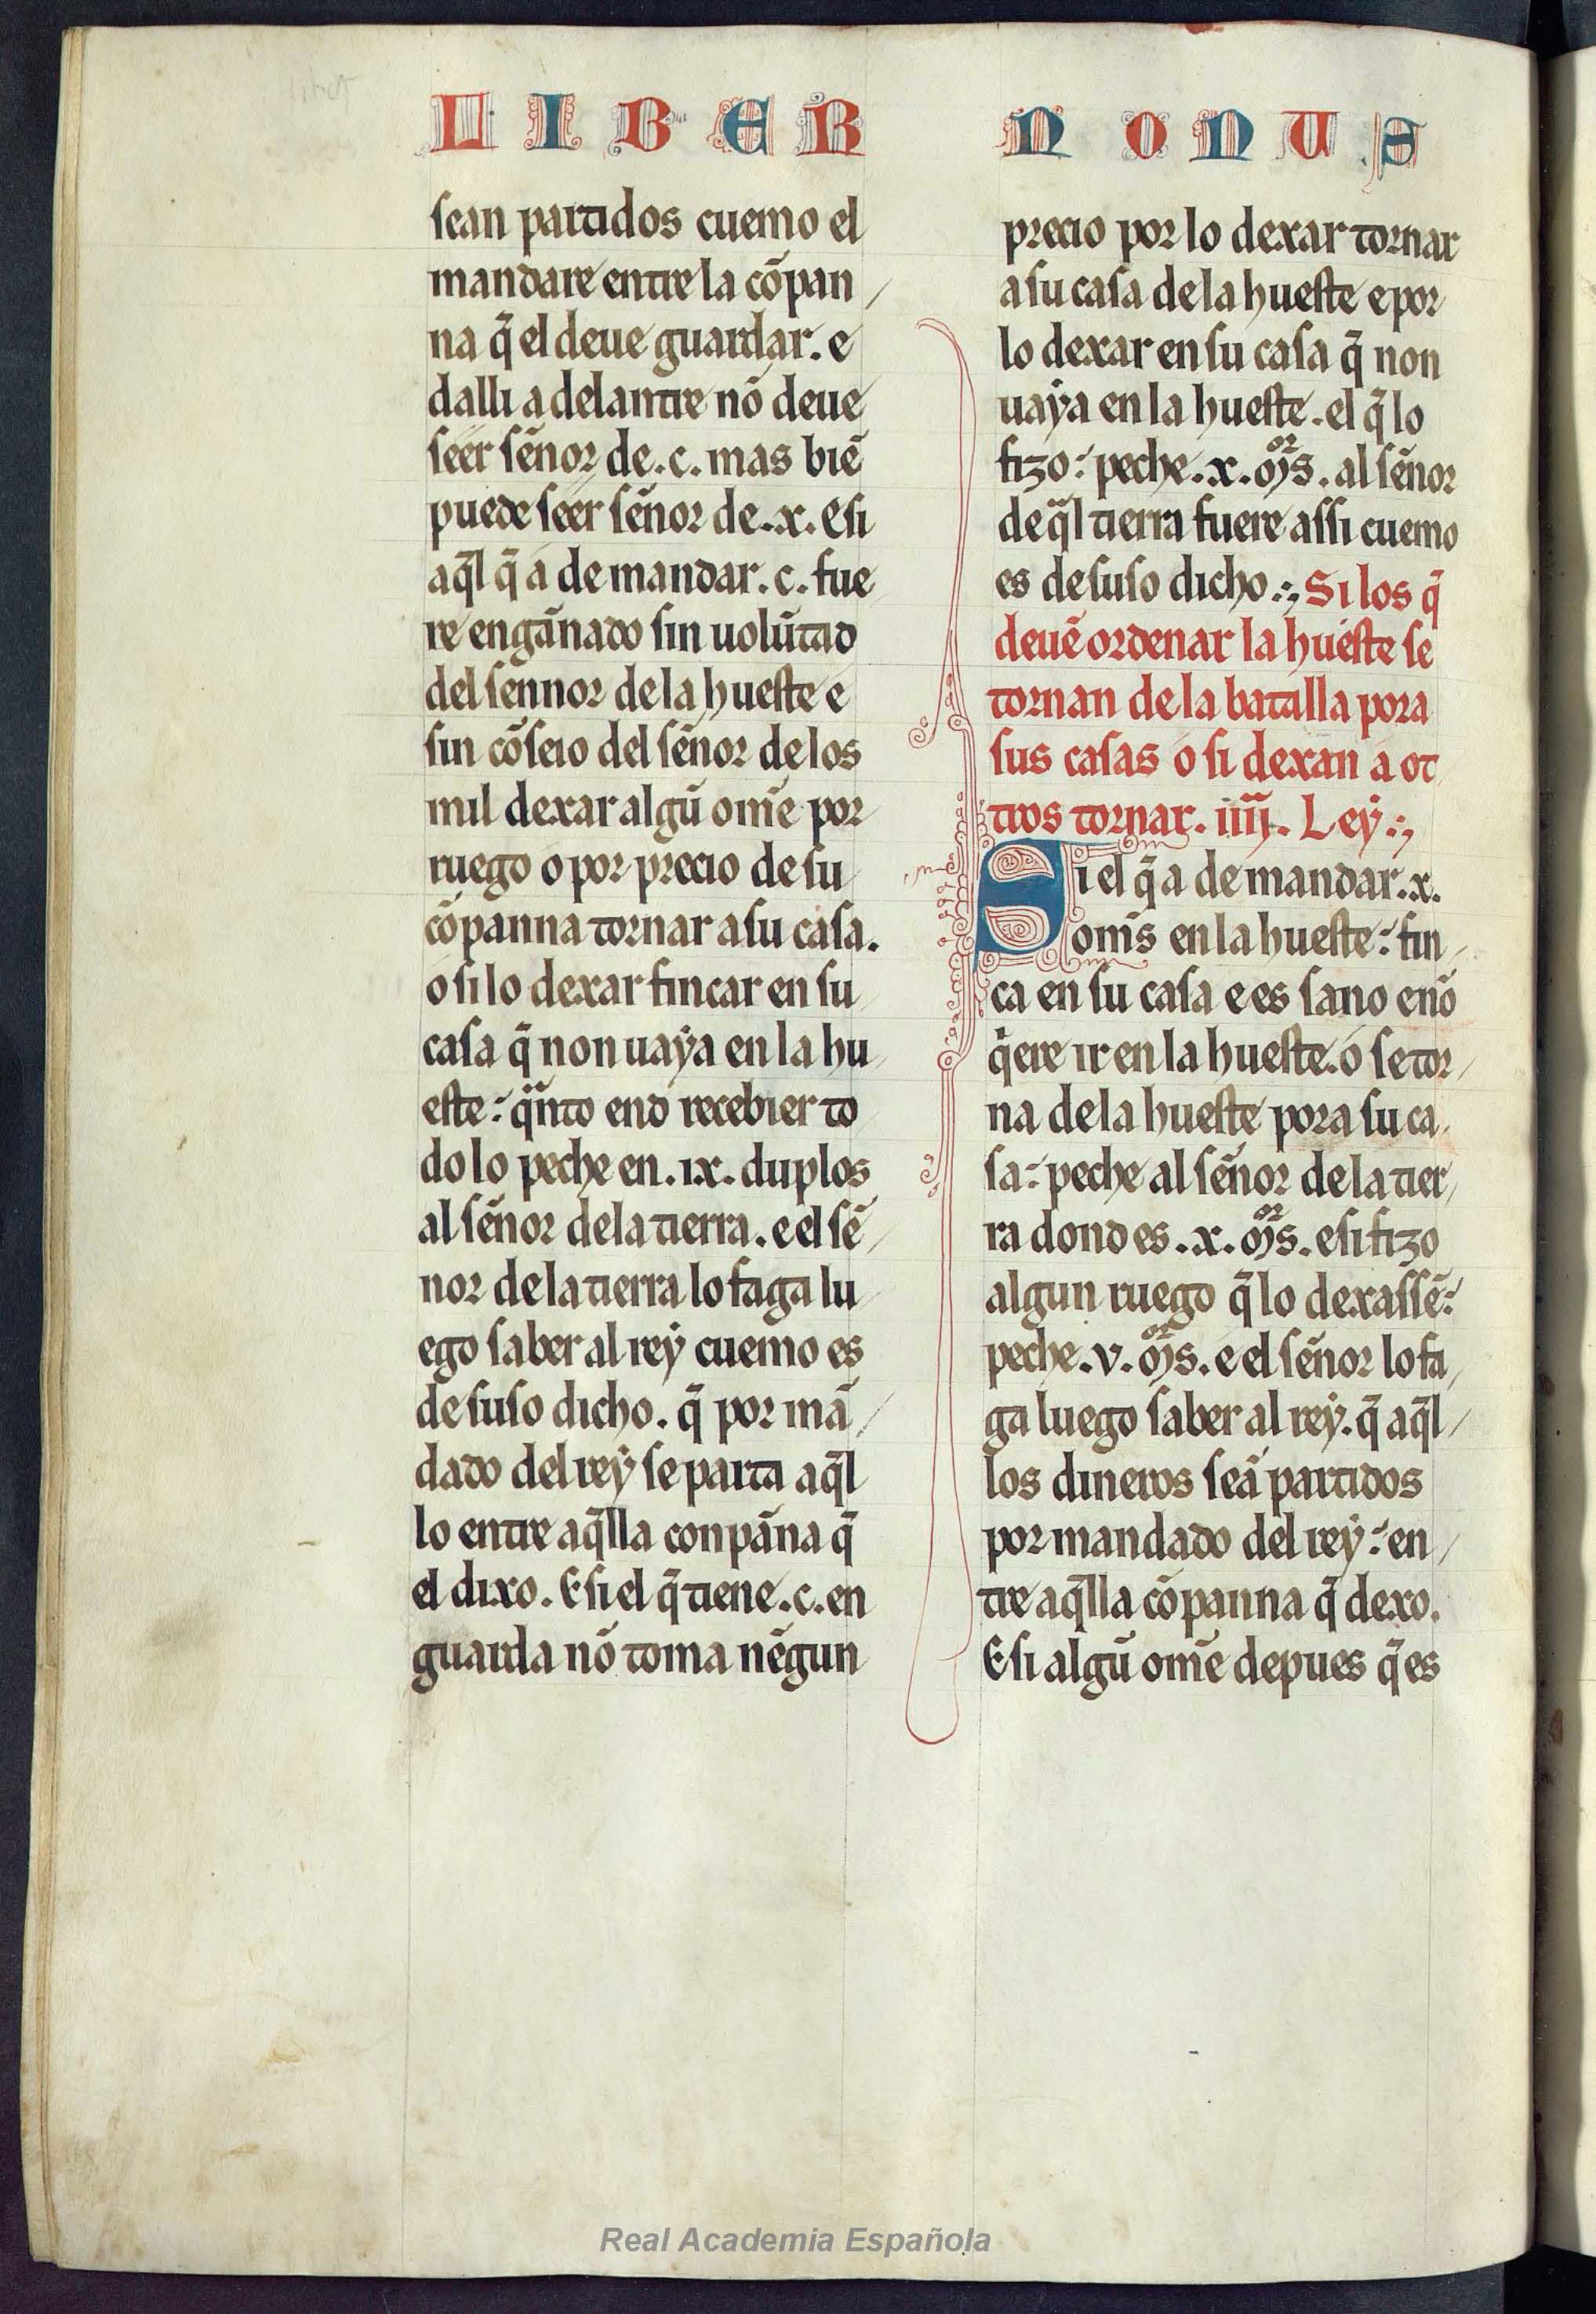 LIBER NONUS
sean partidos cuemo el
mandare entre la cõpan
na q̃ el deue guardar. e
dalli adelantre nõ deue
seer sẽnor de .c. mas biẽ
puede seer sẽnor de .x. E si
aq̃l q̃ a de mandar .c. fue
re engãnado sin uolũtad
del sennor de la hueste e
sin cõseio del sẽnor de los
mil dexar algũ om̃e por
ruego o por precio de su
cõpanna tornar a su casa.
o si lo dexar fincar en su
casa q̃ non uaẏa en la hu
este: q̃nto end recebier to
do lo peche en .ix. duplos
al sẽnor dela tierra. e el sẽ
nor de la tierra lo faga lu
ego saber al reẏ cuemo es
de suso dicho. q̃ por mã
dado del reẏ se parta aq̃l
lo entre aq̃lla conpãna q̃
el dixo. E si el q̃ tiene .c. en
guarda nõ toma nẽgun
precio por lo dexar tornar
a su casa de la hueste e por
lo dexar en su casa q̃ non
uaẏa en la hueste. el q̃ lo
fizo: peche .x. mͦr̃s. al sẽnor
de q̃l tierra fuere assi cuemo
es desuso dicho. Si los q̃
deuẽ ordenar la hueste se
tornan de la batalla pora
sus casas o si dexan a ot
tros tornar. iiij. Leẏ.
Si el q̃ a de mandar .x.
om̃s en la hueste: fin
ca en su casa e es sano e nõ
q̃ere ir en la hueste. o se tor
na de la hueste pora su ca
sa: peche al sẽnor de la tier
ra dond es .x. mͦr̃s. e si fizo
algun ruego q̃ lo dexassẽ:
peche .v. mͦr̃s. e el sẽnor lo fa
ga luego saber al reẏ. q̃ aq̃l
los dineros seã partidos
por mandado del reẏ: en
tre aq̃lla cõpanna q̃ dexo.
E si algũ om̃e depues q̃ es
Real Academia Española